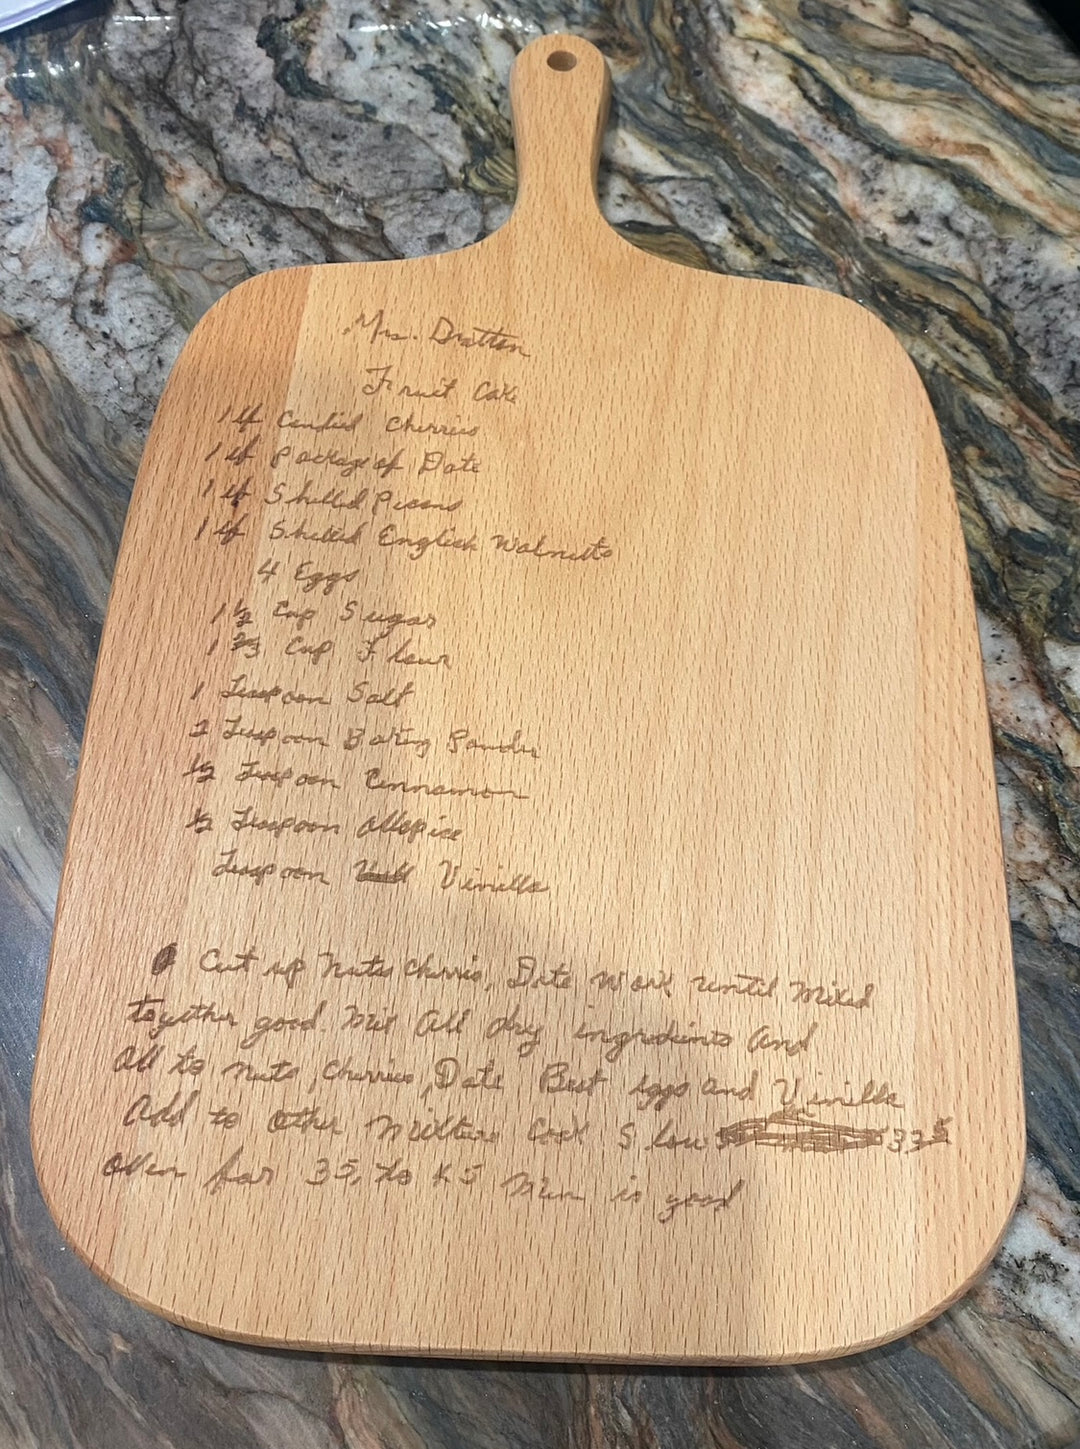 Mrs. Dratton
Fruit Cake
1 lb Candied Cherries
1 lb package of Date
1 lb Shelled Pecans
1 lb Shelled English Walnutts
4 Eggs
1 1/2 Cup Sugar
1 2/3 Cup Flour
1 Teaspoon Salt
2 Teaspoon Baking Powder
1/2 Teaspoon Cinnamon
1/2 Teaspoon Allspice
Teaspoon Vinilla
Cut up nuts cherris, Date work until mixed
together good. Mix all dry ingredients and
all to nuts, cherries, Date Beat eggs and Vinilla
add to other mixture Cook Slow 335
oven for 35, to 45 Min is good